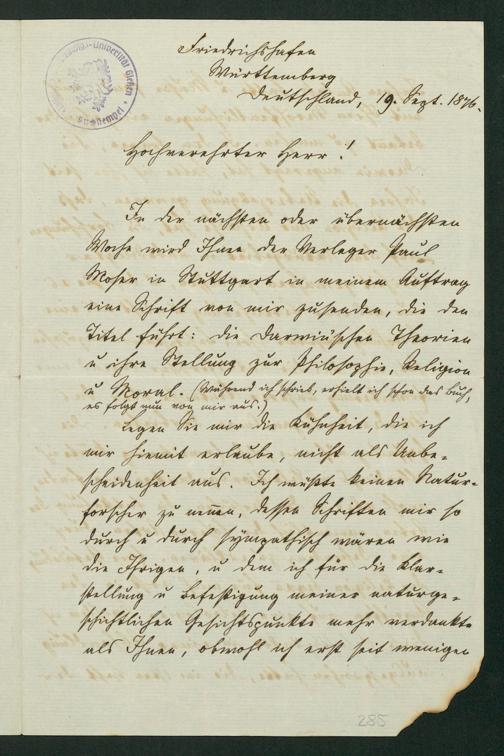 Friedrichshafen
Württemberg
Deutschland, 19. Sept. 1876.
Hochverehrter Herr!
In der nächsten oder übernächsten
Woche wird Ihnen der Verleger Paul
Moser in Stuttgart in meinem Auftrag
eine Schrift von mir zusenden, die den
Titel führt: die Darwin'schen Theorien
u ihre Stellung zur Philosophie, Religion
u Moral. (Während ich schrieb, erhielt ich schon das Buch,
es folgt nun von mir aus.)
Legen Sie mir die Kühnheit, die ich
mir hiemit erlaube, nicht als Unbe-
scheidenheit aus. Ich wüßte keinen Natur-
forscher zu nennen, dessen Schriften mir so
durch u durch sympathisch wären wie
die Ihrigen, u dem ich für die Klar-
stellung u Befestigung meiner naturge-
schichtlichen Gesichtspunkte mehr verdankte
als Ihnen, obwohl ich erst seit wenigen
285